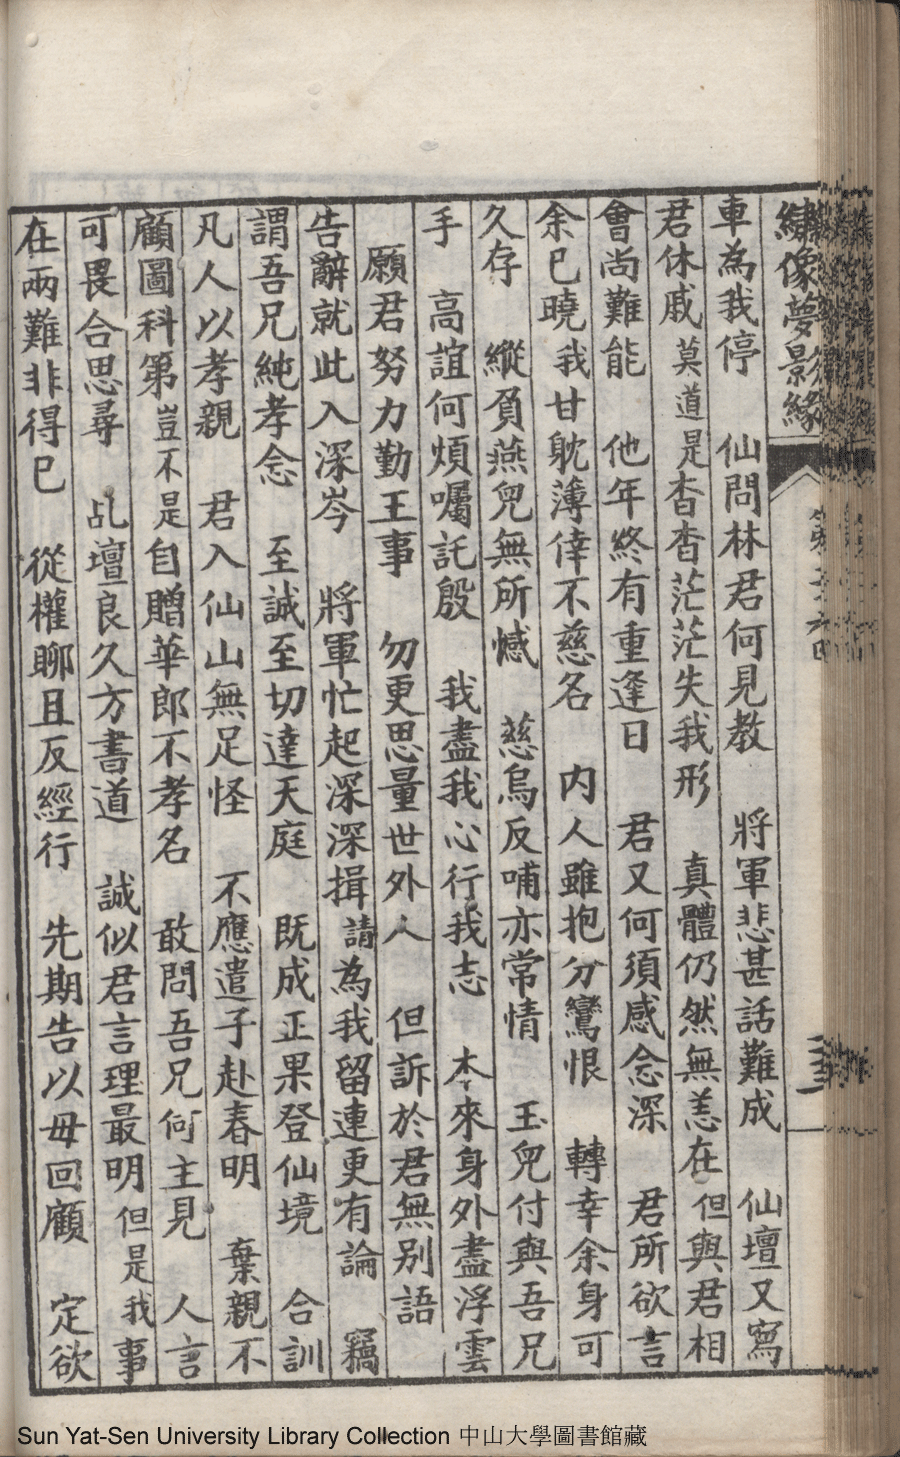 繡像夢影緣
車為我停　仙問林君何見教　將軍悲甚話難成　仙壇又寫
君休戚莫道是杳杳茫茫失我形　真體仍然無恙在但與君相
會尚難能　他年終有重逢日　君又何須感念深　君所欲言
余已曉我甘躭薄倖不慈名　内人雖抱分鸞恨　轉幸余身可
久存　縱負燕兒無所憾　慈烏反哺亦常情　玉兒付與吾兄
手　高誼何煩囑託殷　我盡我心行我志　本來身外盡浮雲
願君努力勤王事　勿更思量世外人　但訴於君無别語
告辭就此入深岑　將軍忙起深深揖請為我留連更有論　竊
謂吾兄純孝念　至誠至切達天庭　既成正果登仙境　合訓
凡人以孝親　君入仙山無足怪　不應遣子赴春明　棄親不
顧圖科第豈不是自贈華郎不孝名　敢問吾兄何主見　人言
可畏合思尋　乩壇良久方書道　誠似君言理最明但是我事
在兩難非得已　從權聊且反經行　先期告以毋回顧　定欲
Sun Yat-Sen University Library Collection 中山大學圖書館藏